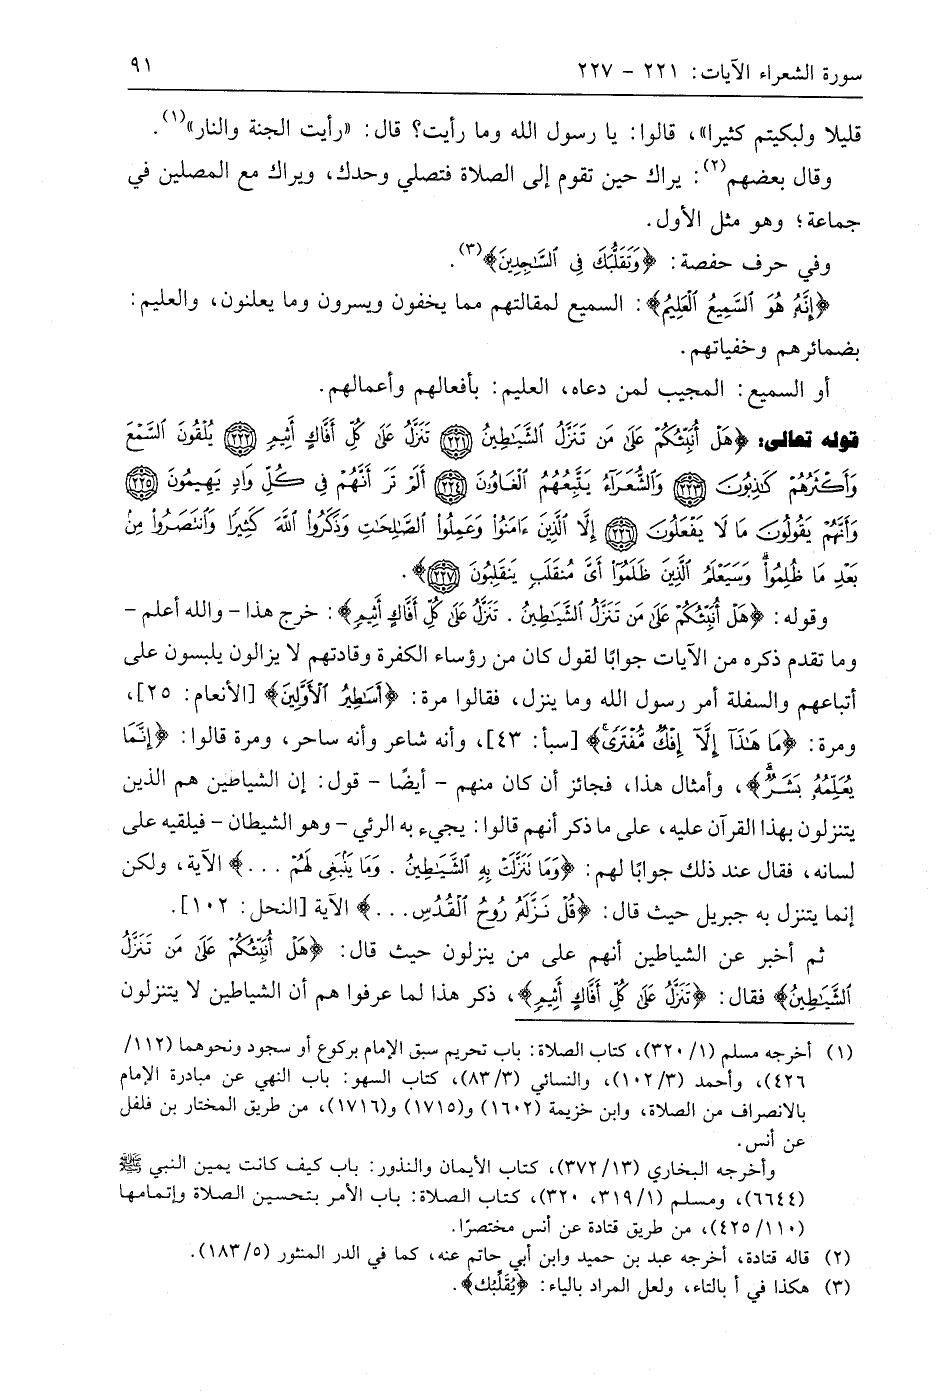 سورة الشعراء الآيات: ٢٢١ - ٢٢٧ ٩١
قليلا ولبكيتم كثيرا»، قالوا: يا رسول الله وما رأيت؟ قال: «رأيت الجنة والنار»(١).
وقال بعضهم(٢): يراك حين تقوم إلى الصلاة فتصلي وحدك، ويراك مع المصلين في
جماعة؛ وهو مثل الأول.
وفي حرف حفصة: ﴿وَتَقَلُّبَكَ فِي ٱلسَّٰجِدِينَ﴾(٣).
﴿إِنَّهُۥ هُوَ ٱلسَّمِيعُ ٱلْعَلِيمُ﴾: السميع لمقالتهم مما يخفون ويسرون وما يعلنون، والعليم:
بضمائرهم وخفياتهم.
أو السميع: المجيب لمن دعاه، العليم: بأفعالهم وأعمالهم.
قوله تعالى: ﴿هَلْ أُنَبِّئُكُمْ عَلَىٰ مَن تَنَزَّلُ ٱلشَّيَٰطِينُ ٢٢١ تَنَزَّلُ عَلَىٰ كُلِّ أَفَّاكٍ أَثِيمٍ ٢٢٢ يُلْقُونَ ٱلسَّمْعَ
وَأَكْثَرُهُمْ كَٰذِبُونَ ٢٢٣ وَٱلشُّعَرَآءُ يَتَّبِعُهُمُ ٱلْغَاوُۥنَ ٢٢٤ أَلَمْ تَرَ أَنَّهُمْ فِى كُلِّ وَادٍ يَهِيمُونَ ٢٢٥
وَأَنَّهُمْ يَقُولُونَ مَا لَا يَفْعَلُونَ ٢٢٦ إِلَّا ٱلَّذِينَ ءَامَنُوا۟ وَعَمِلُوا۟ ٱلصَّٰلِحَٰتِ وَذَكَرُوا۟ ٱللَّهَ كَثِيرًا وَٱنتَصَرُوا۟ مِنۢ
بَعْدِ مَا ظُلِمُوا۟ ۗ وَسَيَعْلَمُ ٱلَّذِينَ ظَلَمُوٓا۟ أَىَّ مُنقَلَبٍ يَنقَلِبُونَ ٢٢٧﴾.
وقوله: ﴿هَلْ أُنَبِّئُكُمْ عَلَىٰ مَن تَنَزَّلُ ٱلشَّيَٰطِينُ . تَنَزَّلُ عَلَىٰ كُلِّ أَفَّاكٍ أَثِيمٍ﴾: خرج هذا - والله أعلم -
وما تقدم ذكره من الآيات جوابًا لقول كان من رؤساء الكفرة وقادتهم لا يزالون يلبسون على
أتباعهم والسفلة أمر رسول الله وما ينزل، فقالوا مرة: ﴿أَسَٰطِيرُ ٱلْأَوَّلِينَ﴾ [الأنعام: ٢٥]،
ومرة: ﴿مَا هَٰذَآ إِلَّآ إِفْكٌ مُّفْتَرًى﴾ [سبأ: ٤٣]، وأنه شاعر وأنه ساحر، ومرة قالوا: ﴿إِنَّمَا
يُعَلِّمُهُۥ بَشَرٌ ۗ﴾، وأمثال هذا، فجائز أن كان منهم - أيضًا - قول: إن الشياطين هم الذين
يتنزلون بهذا القرآن عليه، على ما ذكر أنهم قالوا: يجيء به الرئي - وهو الشيطان - فيلقيه على
لسانه، فقال عند ذلك جوابًا لهم: ﴿وَمَا تَنَزَّلَتْ بِهِ ٱلشَّيَٰطِينُ . وَمَا يَنۢبَغِى لَهُمْ ...﴾ الآية، ولكن
إنما يتنزل به جبريل حيث قال: ﴿قُلْ نَزَّلَهُۥ رُوحُ ٱلْقُدُسِ...﴾ الآية [النحل: ١٠٢].
ثم أخبر عن الشياطين أنهم على من ينزلون حيث قال: ﴿هَلْ أُنَبِّئُكُمْ عَلَىٰ مَن تَنَزَّلُ
ٱلشَّيَٰطِينُ﴾ فقال: ﴿تَنَزَّلُ عَلَىٰ كُلِّ أَفَّاكٍ أَثِيمٍ﴾، ذكر هذا لما عرفوا هم أن الشياطين لا يتنزلون
(١) أخرجه مسلم (١/ ٣٢٠)، كتاب الصلاة: باب تحريم سبق الإمام بركوع أو سجود ونحوهما (١١٢/
٤٢٦)، وأحمد (٣/ ١٠٢)، والنسائي (٣/ ٨٣)، كتاب السهو: باب النهي عن مبادرة الإمام
بالانصراف من الصلاة، وابن خزيمة (١٦٠٢) و(١٧١٥) و(١٧١٦)، من طريق المختار بن فلفل
عن أنس.
وأخرجه البخاري (١٣/ ٣٧٢)، كتاب الأيمان والنذور: باب كيف كانت يمين النبي ﷺ
(٦٦٤٤)، ومسلم (١/ ٣١٩، ٣٢٠)، كتاب الصلاة: باب الأمر بتحسين الصلاة وإتمامها
(١١٠/ ٤٢٥)، من طريق قتادة عن أنس مختصرًا.
(٢) قاله قتادة، أخرجه عبد بن حميد وابن أبي حاتم عنه، كما في الدر المنثور (٥/ ١٨٣).
(٣) هكذا في أ بالتاء، ولعل المراد بالياء: ﴿يُقَلِّبُك﴾.